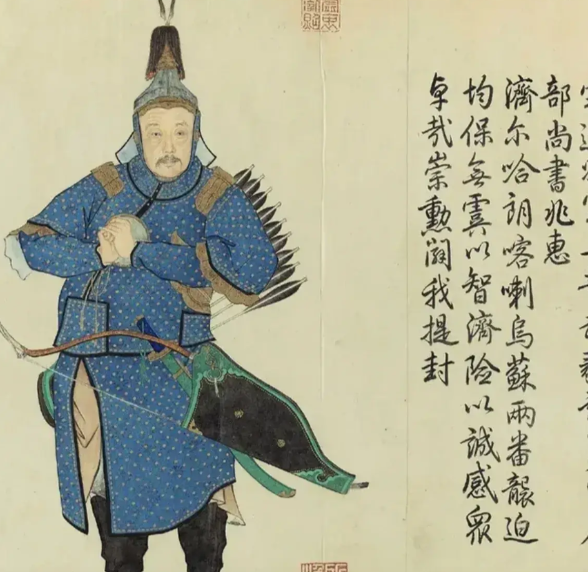 部尚書兆惠
濟尔哈朗喀喇烏蘇兩番襲迫
均保無虞以智濟險以誠感眾
卓哉崇勳闢我提封